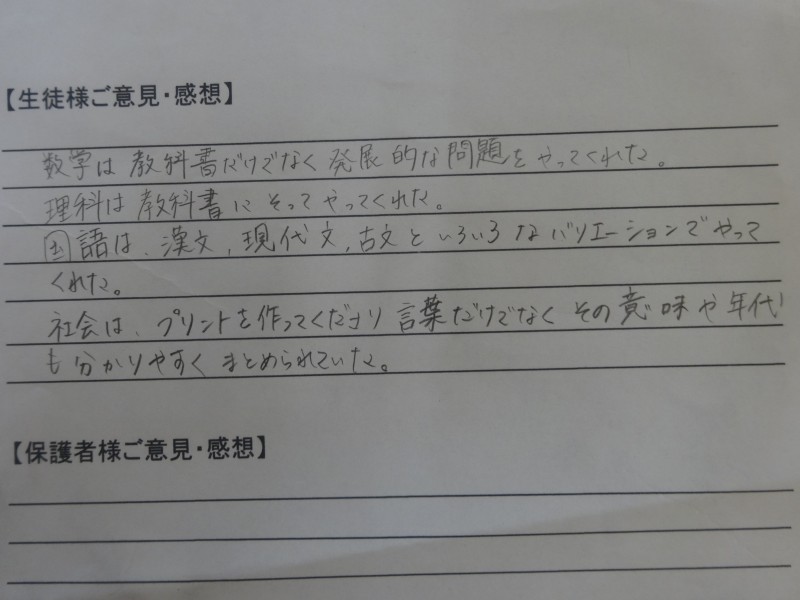 【生徒様ご意見・感想】
数学は教科書だけでなく発展的な問題をやってくれた。
理科は教科書にそってやってくれた。
国語は、漢文，現代文，古文といろいろなバリエーションでやって
くれた。
社会は、プリントを作ってくださり言葉だけでなくその意味や年代
も分かりやすくまとめられていた。
【保護者様ご意見・感想】